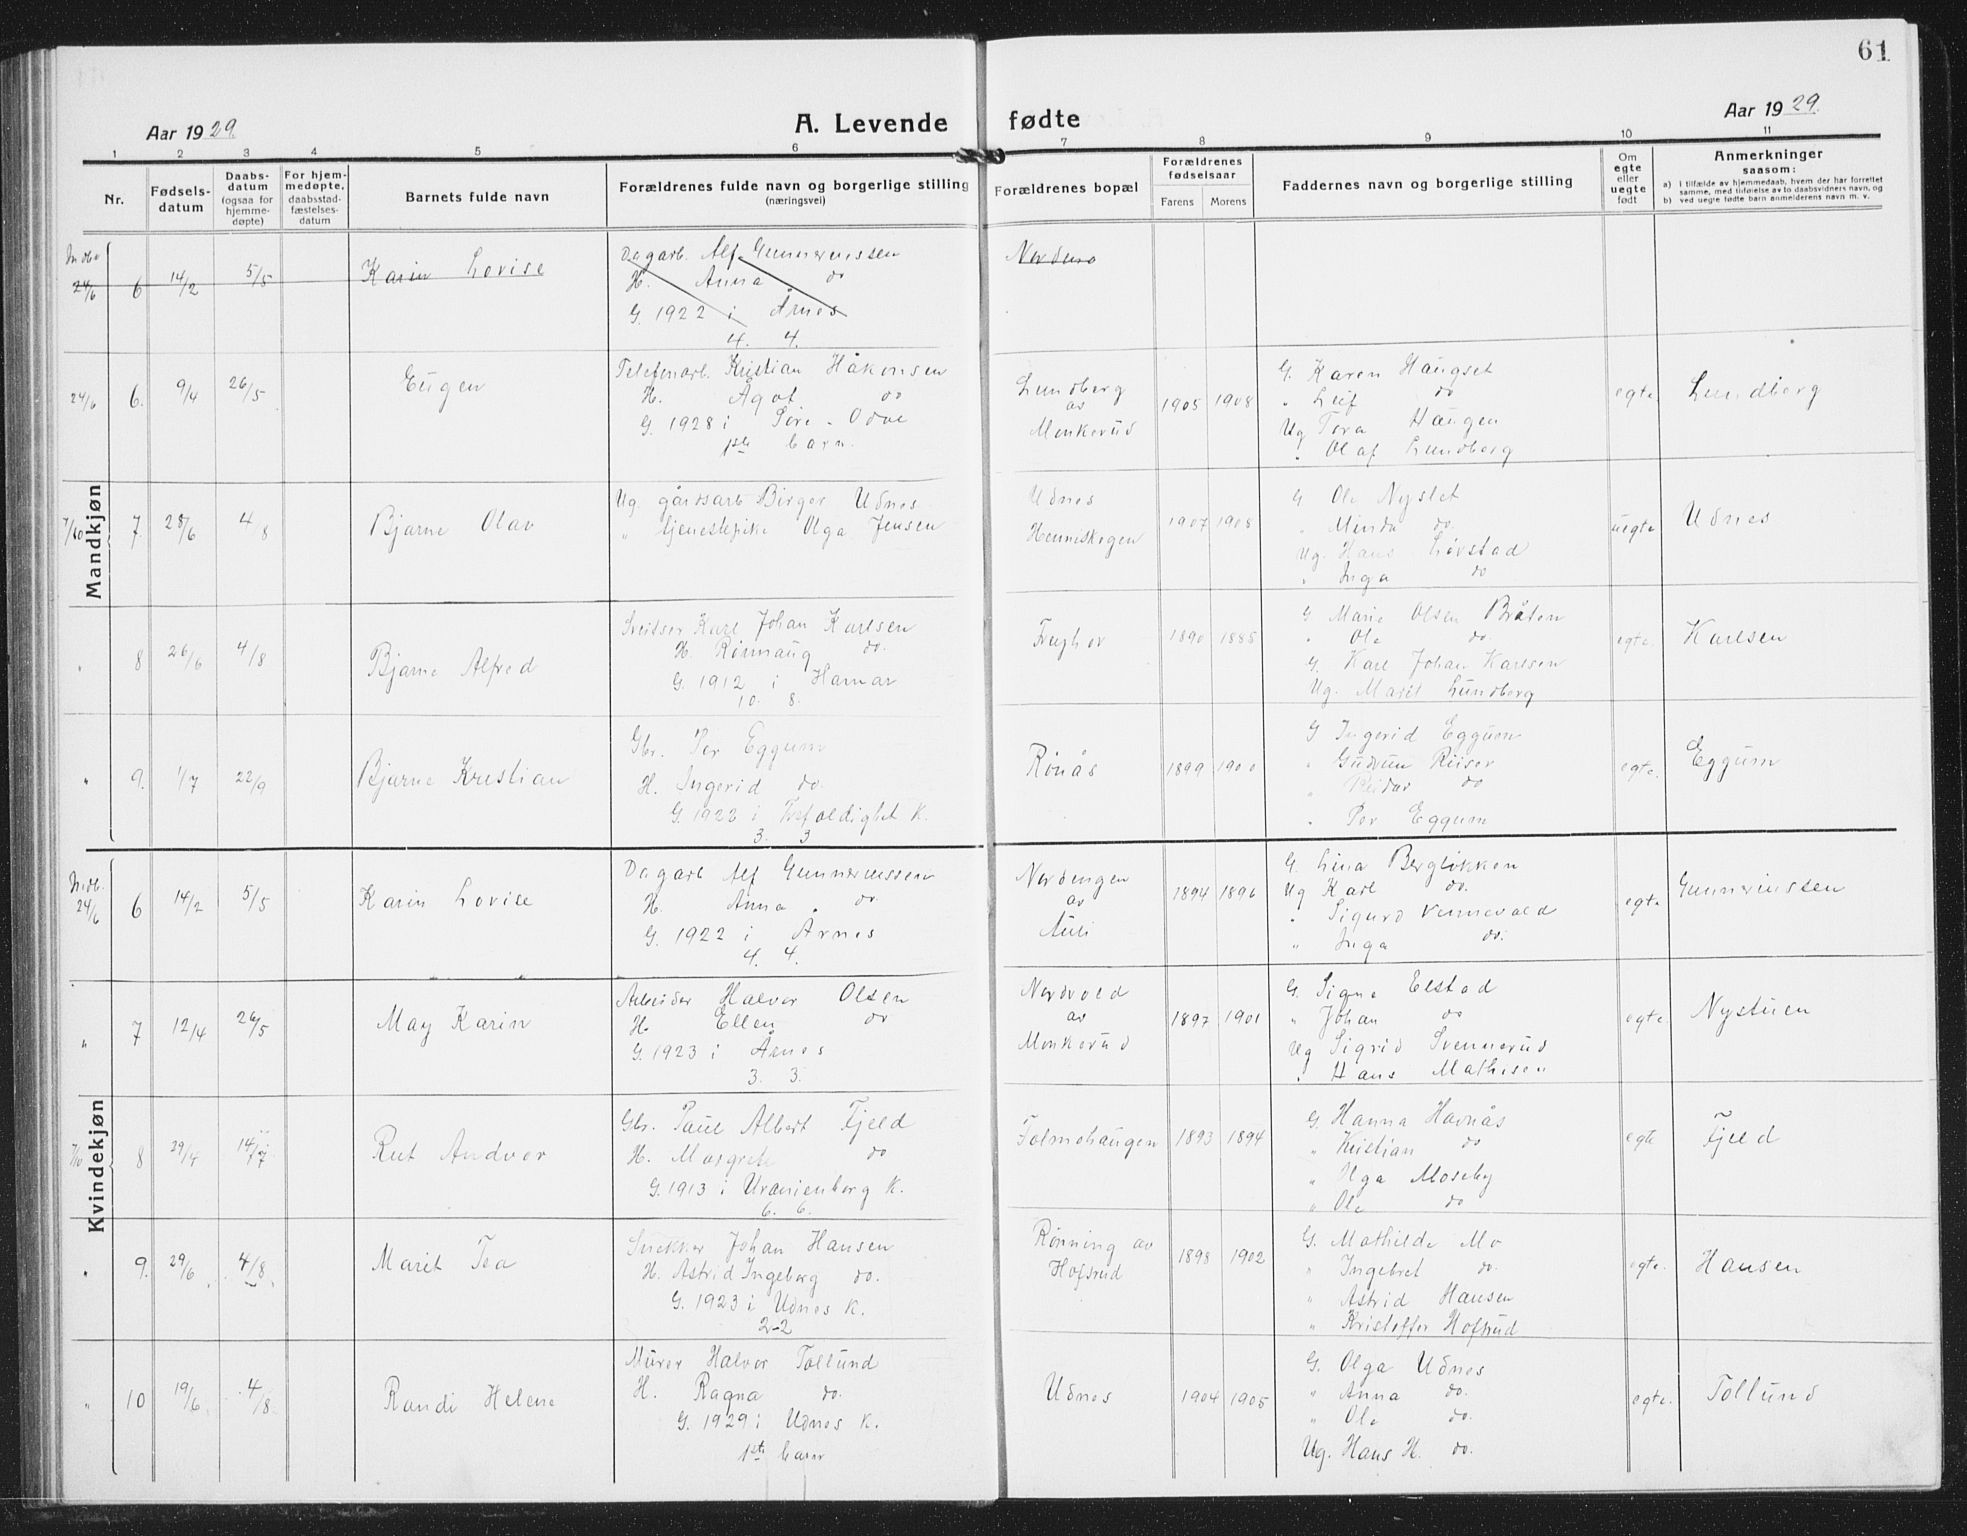 61
Aar 1929.
A. Levende fødte
Aar 1929.
1 2 3 4 5 6 7 8 9 10 11
Nr.
Fødsels-
datum
Daabs-
datum
(ogsaa for
hjemme-
døpte)
For hjem-
medøpte,
daabsstad-
fæstelses-
datum
Barnets fulde navn
Forældrenes fulde navn og borgerlige stilling
(næringsvei)
Forældrenes bopæl
Forældrenes
fødselsaar
Farens Morens
Faddernes navn og borgerlige stilling
Om
egte
eller
uegte
født
Anmerkninger
saasom:
a) I tilfælde av hjemmedaab, hvem der har forrettet
samme, med tilføielse av to daabsvidners navn, og
b) ved uegte fødte barn anmelderens navn m. v.
Mandkjøn
24/6 6 14/2 5/5 Karin Lovise
Dagarb. Alf Gunnerussen
H. Anna do
G. 1922 i Årnes
4. 4.
24/6 6. 9/4 26/5 Eugen
Telefonarb. Kristian Håkonsen
H. Ågot do
G. 1928 i Øvre
1ste barn.
Lundberg
av
Monkerud
1905 1908
G. Karen Haugset
" Leif do
Ug Tora Haugen
" Olaf Lundberg
egte Lundberg
7/10 7. 28/6 4/8 Bjarne Olav
Ug gårdsarb Birger Udnes
" tjenestepike Olga Jensen
Udnes
Henniskogen
1907 1908
G Ole Nyslet
" Minda do.
Ug. Hans Løvstad
" Inga do
uegte Udnes
" 8 26/6 4/8 Bjarne Alfred
Sveitser Karl Johan Karlsen
H. Rønnaug do.
G. 1912 i Hamar
10. 8.
Frughov
1890 1885
G Marie Olsen Bråten
" Ole do.
G. Karl Johan Karlsen
Ug. Marit Lundberg
egte. Karlsen
" 9. 1/7 22/9 Bjarne Kristian
Gbr. Per Eggum
H. Ingerid do.
G. 1922 i Trefoldighet K.
3. 3
Rønås
1899 1900
G Ingerid Eggum
" Gudrun Riiser
" Reidar do
" Per Eggum
egte. Eggum
Kvindekjøn
Mdb.
24/6 6 14/2 5/5 Karin Lovise
Dagarb Alf Gunnerussen
H. Anna do
G. 1922 i Årnes
4. 4.
Nordengen
av
Auli
1894 1896
G. Lina Bergløkken
Ug Karl do.
" Sigurd Vennevold
" Inga do.
egte Gunnerussen
" 7 12/4 26/5 May Karin
Arbeider Halvor Olsen
H. Ellen do
G. 1923 i Årnes
3. 3.
Nordvold
av
Monkerud
1897 1901
G. Signe Elstad
" Johan do
Ug Sigrid Svennerud
" Hans Mathisen
egte Nystuen
7/10 8 29/4 14/7 Rut Andvor
Gbr. Paul Albert Fjeld
H. Margrete do
G. 1913 i Uranienborg K.
6. 6.
Tolmohaugen
1893 1894
G. Hanna Havnås
" Kristian do
" Olga Moseby
" Ole do
egte Fjeld
" 9. 29/6 4/8 Marit Tea
Snekker Johan Hansen
H. Astrid Ingeborg do.
G. 1923 i Udnes K.
2-2
Rønning av
Hofsrud
1898 1902
G. Mathilde Mo
" Ingebret do.
" Astrid Hansen
" Kristoffer Hofsrud
egte. Hansen
" 10 19/6 4/8 Randi Helene
Murer Halvor Tollund
H. Ragna do.
G. 1929 i Udnes K.
1ste barn
Udnes
1904 1905
G. Olga Udnes
" Anna do.
" Ole do.
Ug. Hans H. do.
egte. Tollund